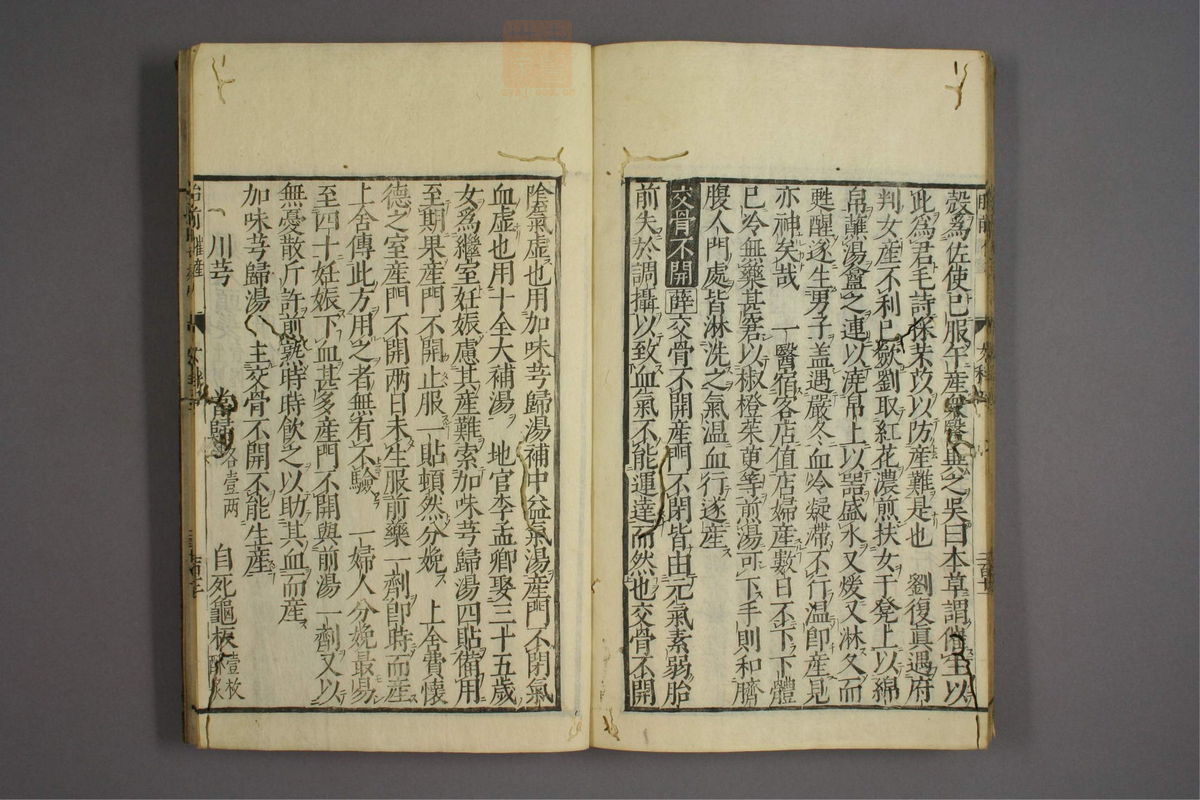 殼爲佐使已服午産衆醫異之吳曰本草謂催生以
此爲君毛詩采芣苡以防産難是也　劉復真遇府
判女産不利已歛劉取紅花濃煎扶女于凳上以綿
帛蘸湯盦之連以澆帛上以器盛水又煖又淋久而
甦醒遂生男子盖遇嚴冬血冷凝滯不行温即産見
亦神矣哉　一醫宿客店值店婦産數日不下下體
已冷無藥甚窘以椒橙茱萸等煎湯可下手則和臍
腹人門處皆淋洗之氣温血行遂産
交骨不開 薛交骨不開産門不閉皆由元氣素弱胎
前失於調攝以致血氣不能運達而然也交骨不開
陰氣虛也用加味芎歸湯補中益氣湯産門不閉氣
血虛也用十全大補湯　地官李孟卿娶三十五歲
女爲繼室妊娠慮其産難索加味芎歸湯四貼備用
至期果産門不開止服一貼頓然分娩　上舍費懷
德之室産門不開兩日未生服前藥一劑即時而産
上舍傳此方用之者無有不驗　一婦人分娩最易
至四十妊娠下血甚多産門不開與前湯一劑又以
無憂散斤許煎熟時時飲之以助其血而産
加味芎歸湯　主交骨不開不能生産
川芎　當歸各壹兩　自死龜板壹枚酥炙